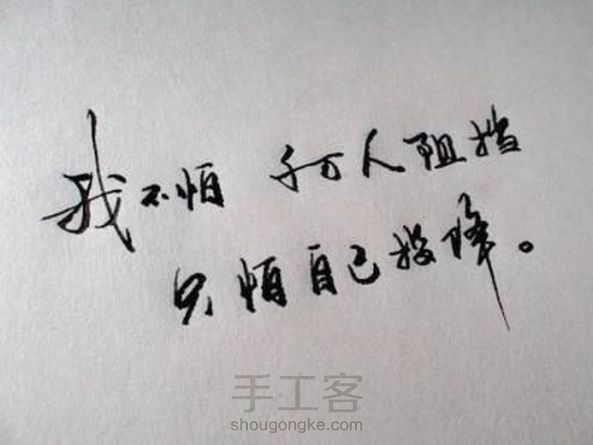 我不怕 千万人阻挡
只怕自己投降。
手工客
shougongke.com